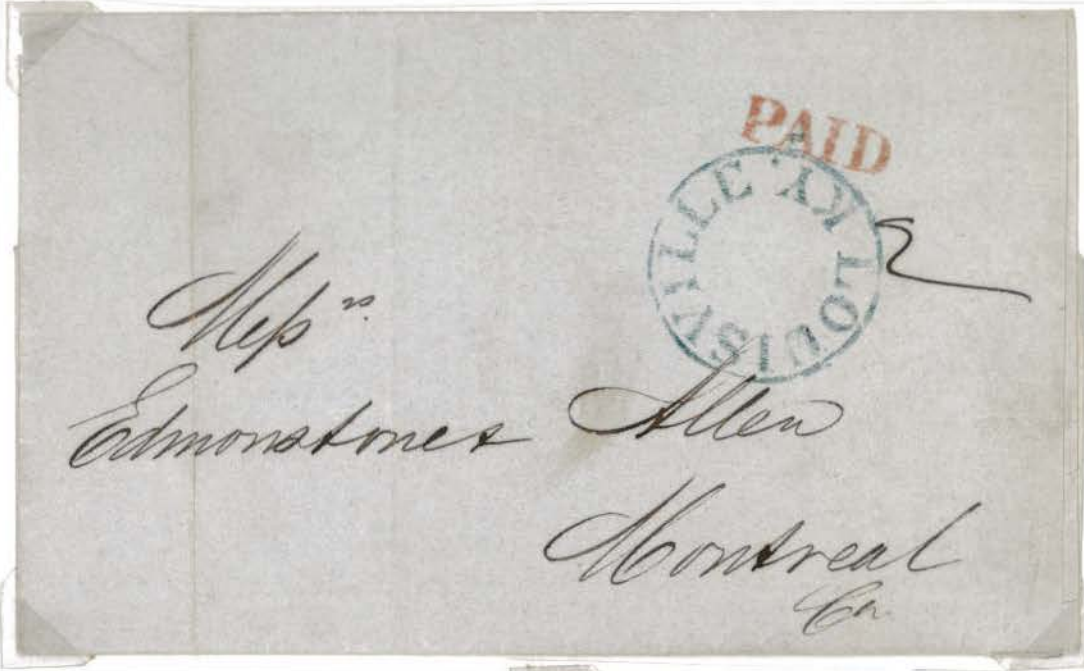 PAID
LOUISVILLE KY.
2
Messrs.
Edmonstones Allen
Montreal
Ca.